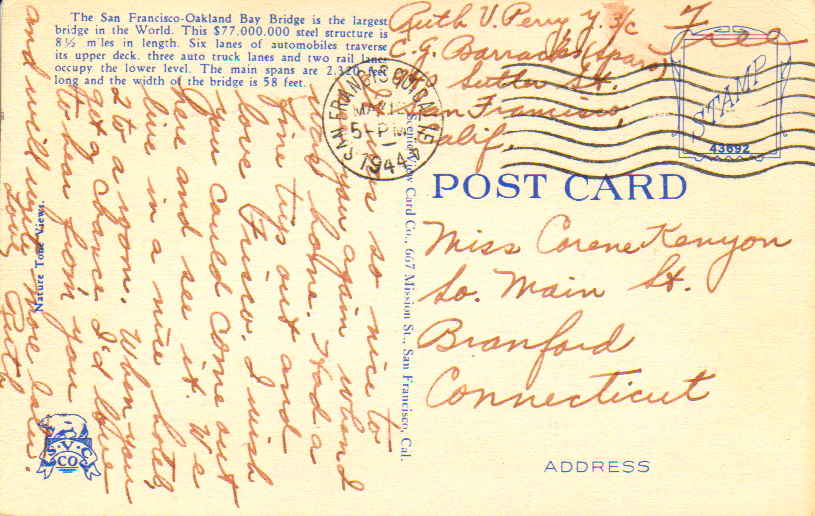 The San Francisco-Oakland Bay Bridge is the largest
bridge in the World. This $77.000.000 steel structure is
8½ miles in length. Six lanes of automobiles traverse
its upper deck. three auto truck lanes and two rail lanes
occupy the lower level. The main spans are 2.320 feet
long and the width of the bridge is 58 feet.
Ruth V. Perry Y. 3/c
C.G. Barracks (Spars)
Sutter St.
San Francisco,
Calif.
Free
SAN FRANCISCO CALIF.
MAY 12
5-PM
1944
STAMP
43692
POST CARD
Miss Corene Kenyon
So. Main St.
Branford
Connecticut
ADDRESS
was so nice to
see you again when I
was home. Had a
fine trip out and
love Frisco. I wish
you could come out
here and see it. We
live in a nice hotel,
2 to a room. When you
get a chance I'd love
to hear from you
and will write more later.
Love,
Ruth
Scenic View Card Co., 667 Mission St., San Francisco, Cal.
Nature Tone Views.
S.V.C
CO